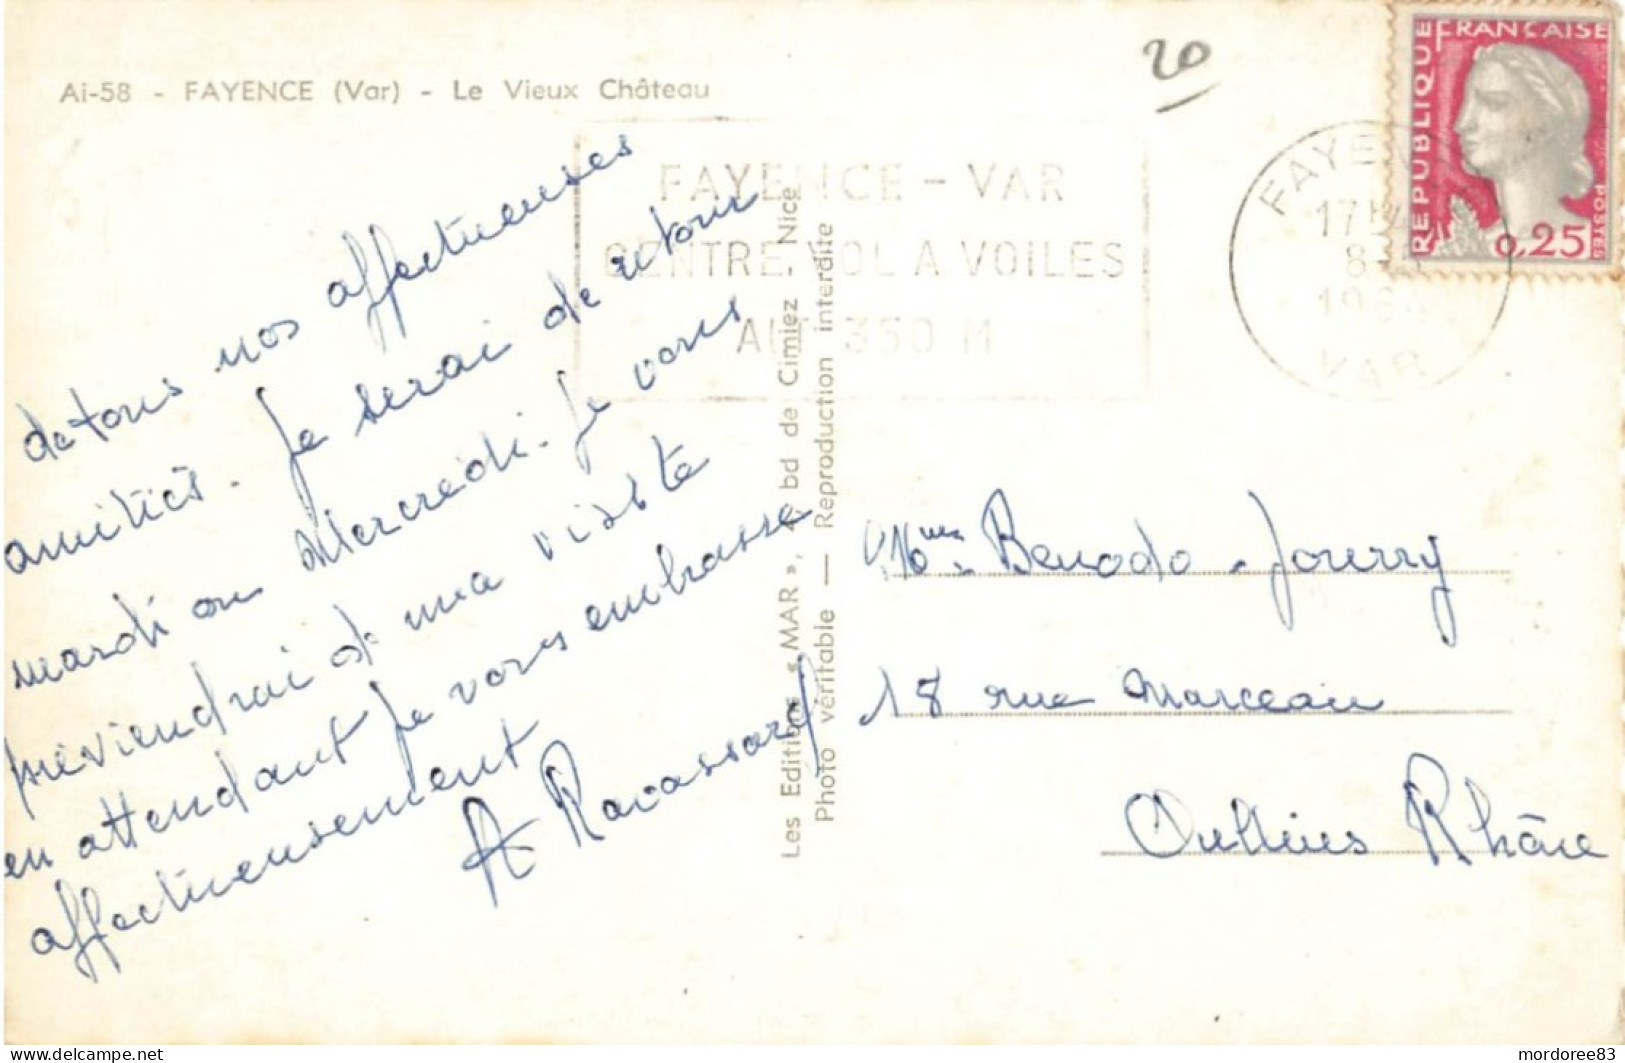 Ai-58 - FAYENCE (Var) - Le Vieux Château
20
FAYENCE - VAR
CENTRE VOL A VOILES
ALT 350 M
FAYENCE
17 H
8
VAR
REPUBLIQUE FRANÇAISE
POSTES
0,25
de tous nos affectueuses
amitiés. Je serai de retour
mardi ou Mercredi. Je vous
préviendrai de ma visite
en attendant je vous embrasse
affectueusement
A Ravassard
Les Editions « MAR », bd de Cimiez, Nice
Photo véritable — Reproduction interdite
Mme Benodo - Jourry
18 rue Marceau
Oullins Rhône
mordoree83